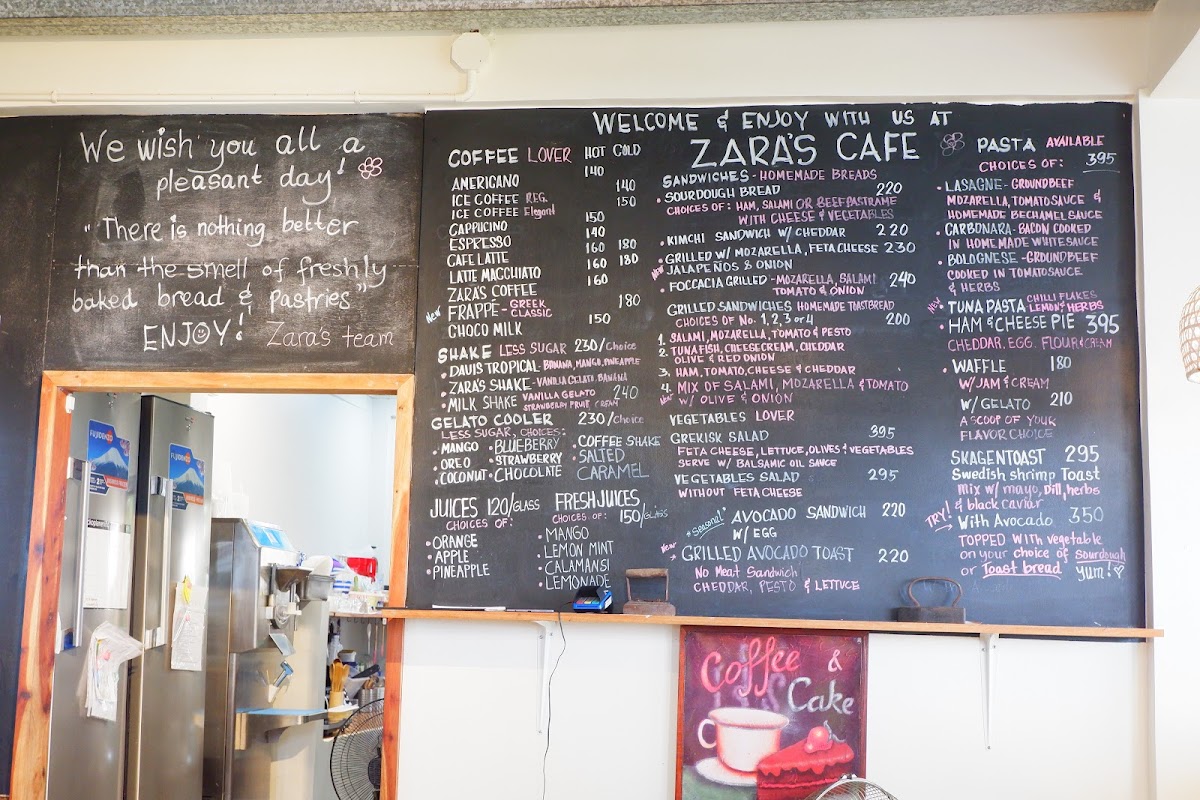 We wish you all a
pleasant day!
"There is nothing better
than the smell of freshly
baked bread & pastries"
ENJOY! Zara's team
WELCOME & ENJOY WITH US AT
ZARA'S CAFE
COFFEE LOVER HOT COLD
AMERICANO 140
ICE COFFEE REG. 140
ICE COFFEE Elegant 150
CAPPUCINO 150
ESPRESSO 140
CAFE LATTE 160 180
LATTE MACCHIATO 160 180
ZARA'S COFFEE 160
New FRAPPE - GREEK 180
CLASSIC
CHOCO MILK 150
SHAKE LESS SUGAR 230/Choice
• DAVIS TROPICAL - BANANA, MANGO, PINEAPPLE
• ZARA'S SHAKE - VANILLA GELATO, BANANA
• MILK SHAKE VANILLA GELATO 240
STRAWBERRY FRUIT CREAM
GELATO COOLER 230/Choice
LESS SUGAR, CHOICES:
• MANGO • BLUEBERRY • COFFEE SHAKE
• OREO • STRAWBERRY • SALTED
• COCONUT • CHOCOLATE CARAMEL
JUICES 120/GLASS
CHOICES OF:
• ORANGE
• APPLE
• PINEAPPLE
FRESH JUICES
CHOICES OF: 150/GLASS
• MANGO
• LEMON MINT
• CALAMANSI
• LEMONADE
SANDWICHES - HOMEMADE BREADS
• SOURDOUGH BREAD 220
CHOICES OF: HAM, SALAMI OR BEEF PASTRAME
WITH CHEESE & VEGETABLES
• KIMCHI SANDWICH W/ CHEDDAR 220
• GRILLED W/ MOZARELLA, FETA CHEESE 230
New JALAPEÑOS & ONION
• FOCCACIA GRILLED - MOZARELLA, SALAMI 240
TOMATO & ONION
GRILLED SANDWICHES HOMEMADE TOASTBREAD
CHOICES OF No. 1, 2, 3 or 4 200
1. SALAMI, MOZARELLA, TOMATO & PESTO
2. TUNA FISH, CHEESECREAM, CHEDDAR
OLIVE & RED ONION
3. HAM, TOMATO, CHEESE & CHEDDAR
4. MIX OF SALAMI, MOZARELLA & TOMATO
New W/ OLIVE & ONION
VEGETABLES LOVER
GREKISK SALAD 395
FETA CHEESE, LETTUCE, OLIVES & VEGETABLES
SERVE W/ BALSAMIC OIL SAUCE
VEGETABLES SALAD 295
WITHOUT FETA CHEESE
"Seasonal" AVOCADO SANDWICH 220
W/ EGG
New GRILLED AVOCADO TOAST 220
No Meat Sandwich
CHEDDAR, PESTO & LETTUCE
PASTA AVAILABLE
CHOICES OF: 395
• LASAGNE - GROUNDBEEF
MOZARELLA, TOMATO SAUCE &
HOMEMADE BECHAMEL SAUCE
• CARBONARA - BACON COOKED
IN HOMEMADE WHITE SAUCE
• BOLOGNESE - GROUNDBEEF
COOKED IN TOMATO SAUCE
& HERBS
New • TUNA PASTA CHILLI FLAKES
LEMON & HERBS
• HAM & CHEESE PIE 395
CHEDDAR, EGG, FLOUR & CREAM
• WAFFLE 180
W/ JAM & CREAM
W/ GELATO 210
A SCOOP OF YOUR
FLAVOR CHOICE
SKAGENTOAST 295
Swedish shrimp Toast
Mix w/ mayo, Dill, herbs
& black caviar
TRY! With Avocado 350
TOPPED WITH vegetable
on your choice of sourdough
or Toast bread YUM!
Coffee &
Cake
FUJIDENZO
FUJIDENZO